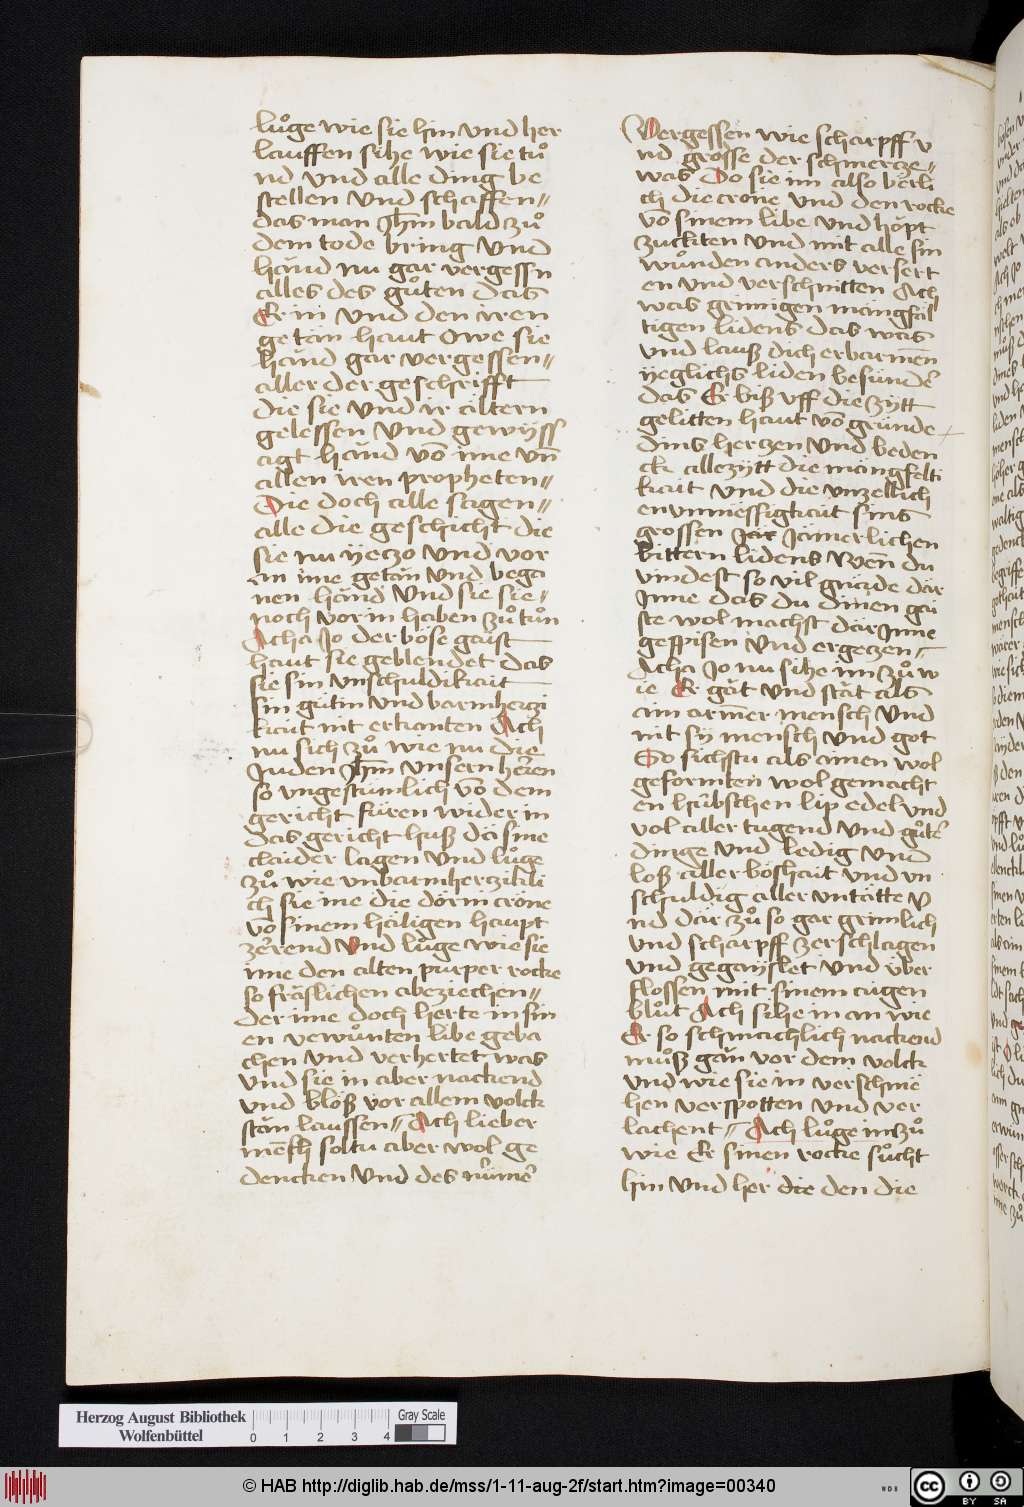 luͦge wie sie hin vnd her
lauffen sihe wie sie tuͦ
nd vnd alle ding be
stellen vnd schaffen〃
das man Jhm̄ bald zuͦ
dem tode bring vnd
händ nu gar vergessn
alles des guͦten das
Er in vnd den iren
getän haut Owe sie
händ gar vergessen〃
aller der geschrifft
die sie vnd ir ältern
gelessen vnd gewÿss
agt händ vō ime vn̄
allen iren propheten〃
Die doch alle sagen〃
alle die geschicht die
sie nu ÿeczo vnd vor
an ime getän vnd bega
nen händ vnd sie sie〃
noch vor in haben zuͦ tuͦn
Acha Jo der böse gaist
haut sie geblendet das
sie sin vnschuldikait
sin gütin vnd barmherczi
kait nit erkanten Ach
nu sich zuͦ wie nu die
Juden Jhm̄ vnsern herren
so vngestümlich vō dem
gericht füren wider in
das gericht huß dä sine
claider lagen vnd luͦge
zuͦ wie vnbarmherczikli
ch sie ime die dörin cröne
vō sinem häligen haupt
zerrend vnd luͦge wie sie
ime den alten purper rocke
so fräslichen abeziechen〃
der ime doch herte in sin
en verwuͦnten libe geba
chen vnd verhertet was
vnd sie in aber nackend
vnd blöß vor allem volck
stän laussen〃 Ach lieber
mēsch soltu aber wol ge
dencken vnd des nimer
Vergessen wie scharpff v
nd grosse der schmercze〃
was Do sie im also berli
ch die crone vnd den rocke
vō sinem libe vnd höpt
zuckten vnd mit alle sin
wuͦnden anders versert
en vnd verschnitten Ach
was grimigen mangfäl
tigen lidens das was
vnd lauß dich erbarmen
ÿeglichs liden besunder
das Er biß vff die zÿtt
gelitten haut vō grunde
dins herczen vnd beden
ck allezÿtt die mangfelti
kait vnd die vnzellich
en vnmessigkait sins
grossen Jämerlichen
bittern lidens Wen̄ du
vindest so vil gnäde där
Jnne das du dinen gai
ste wol machst där Jnne
gespisen vnd ergeczen〃
Acha Jo nu sihe im zuͦ w
ie Er gät vnd stät als
ain armer mensch vnd
nit sÿ mensch vnd got
So sichstu als ainen wol
geformten wol gemacht
en hübschen lip edel vnd
vol aller tugend vnd guͦter
dinge vnd ledig vnd
loß aller böshait vnd vn
schuldig aller vntätte v
nd där zuͦ so gar grimlich
vnd scharpff zerschlagen
vnd gegaÿslet vnd über
flossen mit sinem aigen
blüt Ach sihe in an wie
Er so schmachlich nackend
muͦß gän vor dem volck
vnd wie sie in verschme
hen verspotten vnd ver
lachent〃 Ach luͦge im zuͦ
wie Er sinen rocke suͦcht
hin vnd her die den die
Herzog August Bibliothek
Wolfenbüttel
0 1 2 3 4
Gray Scale
© HAB http://diglib.hab.de/mss/1-11-aug-2f/start.htm?image=00340
WDB
cc BY SA